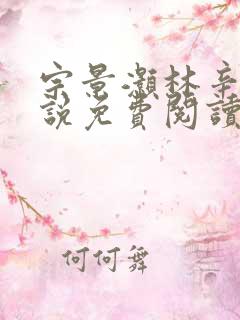 宗景灝林辛
說免費閱讀
何何舞